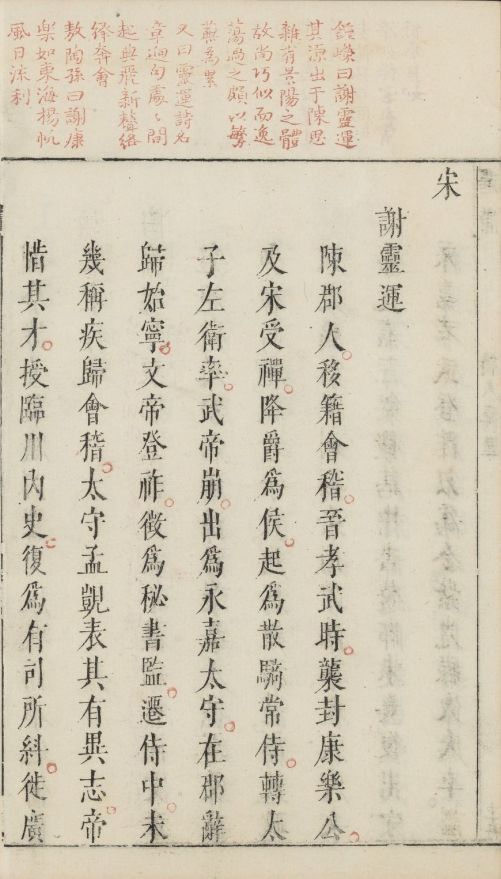 鍾嶸曰謝靈運
其源出于陳思
雜有景陽之體
故尚巧似而逸
蕩過之頗以繁
蕪為累
又曰靈運詩名
章迥句處〻間
起典麗新聲絡
繹奔會
敖陶孫曰謝康
樂如東海揚帆
風日流利
宋
謝靈運
陳郡人。移籍會稽。晉孝武時。襲封康樂公。
及宋受禪。降爵爲侯。起爲散騎常侍。轉太
子左衛率。武帝崩。出爲永嘉太守。在郡辭
歸始寧。文帝登祚。徵爲秘書監。遷侍中。未
幾稱疾歸會稽。太守孟覬表其有異志。帝
惜其才。授臨川內史。復爲有司所糾。徙廣